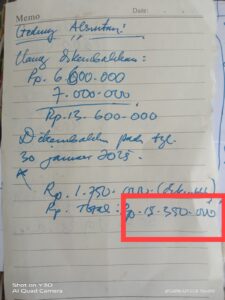 Memo
Date:
Gedung
Uang Dikembalikan:
Rp. 6.600.000
7.000.000
Rp. 13.600.000
Dikembalikan pada tgl.
30 januari 2023
Rp. 1.750.000
Rp. Total: Rp. 15.350.000
Shot on Y30
AI Quad Camera